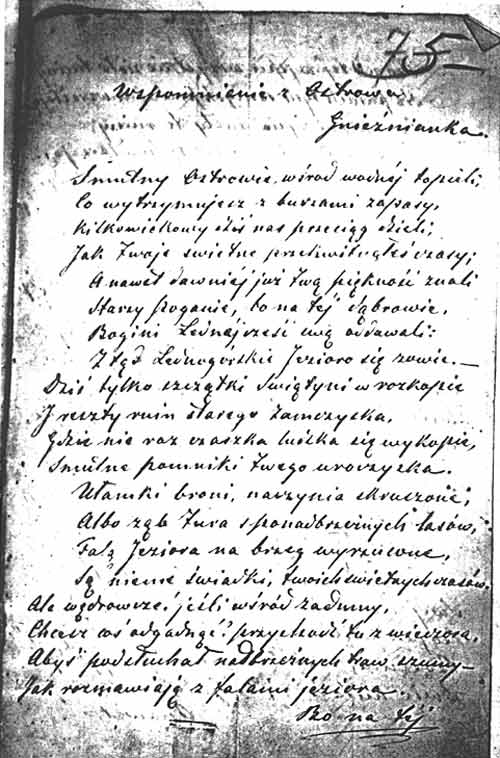 75
Wspomnienie z Ostrowa
Gnieźnianka.
Smutny Ostrowie, wśród wodnéj topieli,
Co wytrzymujesz z burzami zapasy,
Kilkowiekowy dziś nas przeciąg dzieli,
Jak Twoje świetne przekwitnęłeś czasy;
A nawet dawniéj już twą piękność znali
Starzy Poganie, bo na téj dąbrowie,
Bogini Lednéj cześć swą oddawali:
Z tąd Lednogórskie Jezioro się zowie. —
Dziś tylko szczątki świątyni w rozkopie
I reszty ruin starego zamczyska,
Gdzie nie raz czaszka ludzka się wykopie,
Smutne pomniki twego uroczyska.
Ułamki broni, naczynia skruszone,
Albo ząb Tura s ponadbrzeżnych lasów,
Falą Jeziora na brzeg wyrzucone,
Są nieme świadki, twoich świetnych czasów.
Ale wędrowcze! jeśli wśród zadumy,
Chcesz coś odgadnąć? przychodź tu z wieczora,
Abyś podsłuchał nadbrzeżnych traw szumy —
Jak rozmawiają z falami jeziora.
Bo na téj